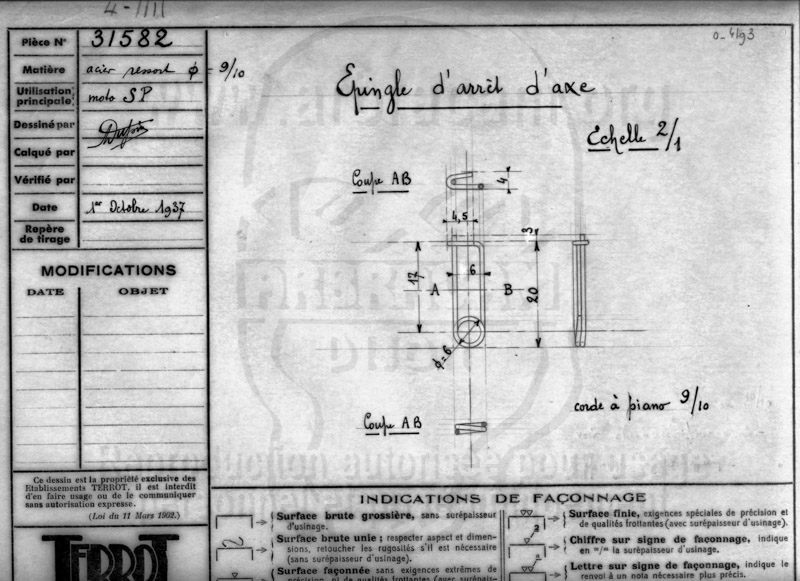 4-1111
Pièce Nº 31582
Matière acier ressort ϕ = 9/10
Utilisation principale moto SP
Dessiné par
Calqué par
Vérifié par
Date 1er Octobre 1937
Repère de tirage
MODIFICATIONS
DATE OBJET
Ce dessin est la propriété exclusive des
Etablissements TERROT, il est interdit
d'en faire usage ou de le communiquer
sans autorisation expresse.
(Loi du 11 Mars 1902.)
TERROT
Epingle d'arrêt d'axe
Echelle 2/1
Coupe AB
4
4,5
3
17
6
A
B
20
ϕ=6
corde à piano 9/10
Coupe AB
INDICATIONS DE FAÇONNAGE
Surface brute grossière, sans surépaisseur
d'usinage.
Surface brute unie; respecter aspect et dimen-
sions, retoucher les rugosités s'il est nécessaire
(sans surépaisseur d'usinage).
Surface façonnée sans exigences extrêmes de
précision, ni de qualités frottantes (avec surépais-
Surface finie, exigences spéciales de précision et
de qualités frottantes (avec surépaisseur d'usinage).
2
Chiffre sur signe de façonnage, indique
en "/" la surépaisseur d'usinage.
Lettre sur signe de façonnage, indique le
renvoi à une nota nécessaire plus précis.